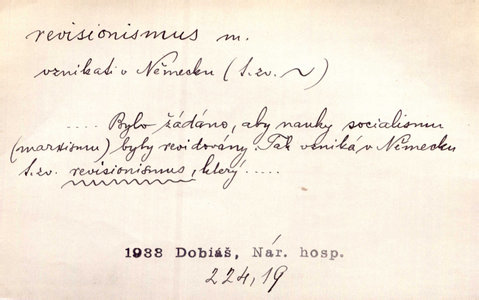 revisionismus m.
vznikati v Německu (t.zv. ~)
.... Bylo žádáno, aby nauky socialismu
(marxismu) byly revidovány. Tak vzniká v Německu
t.zv. revisionismus, který .....
1933 Dobiáš, Nár. hosp.
224,19